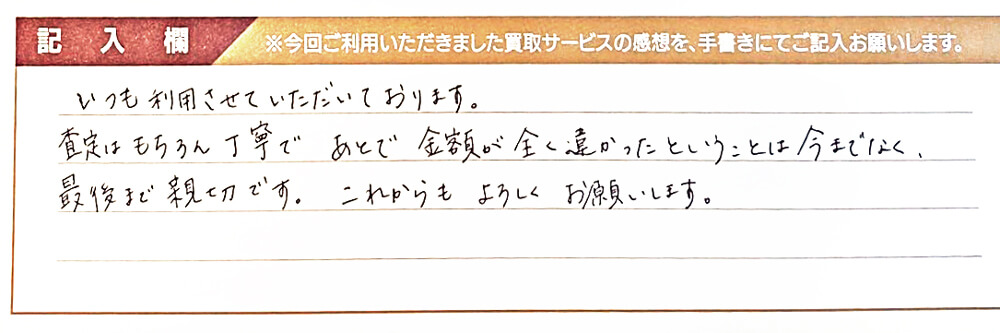 記入欄
※今回ご利用いただきました買取サービスの感想を、手書きにてご記入お願いします。
いつも利用させていただいております。
査定はもちろん丁寧で あとで金額が全く違かったということは今までなく、
最後まで親切です。これからもよろしくお願いします。